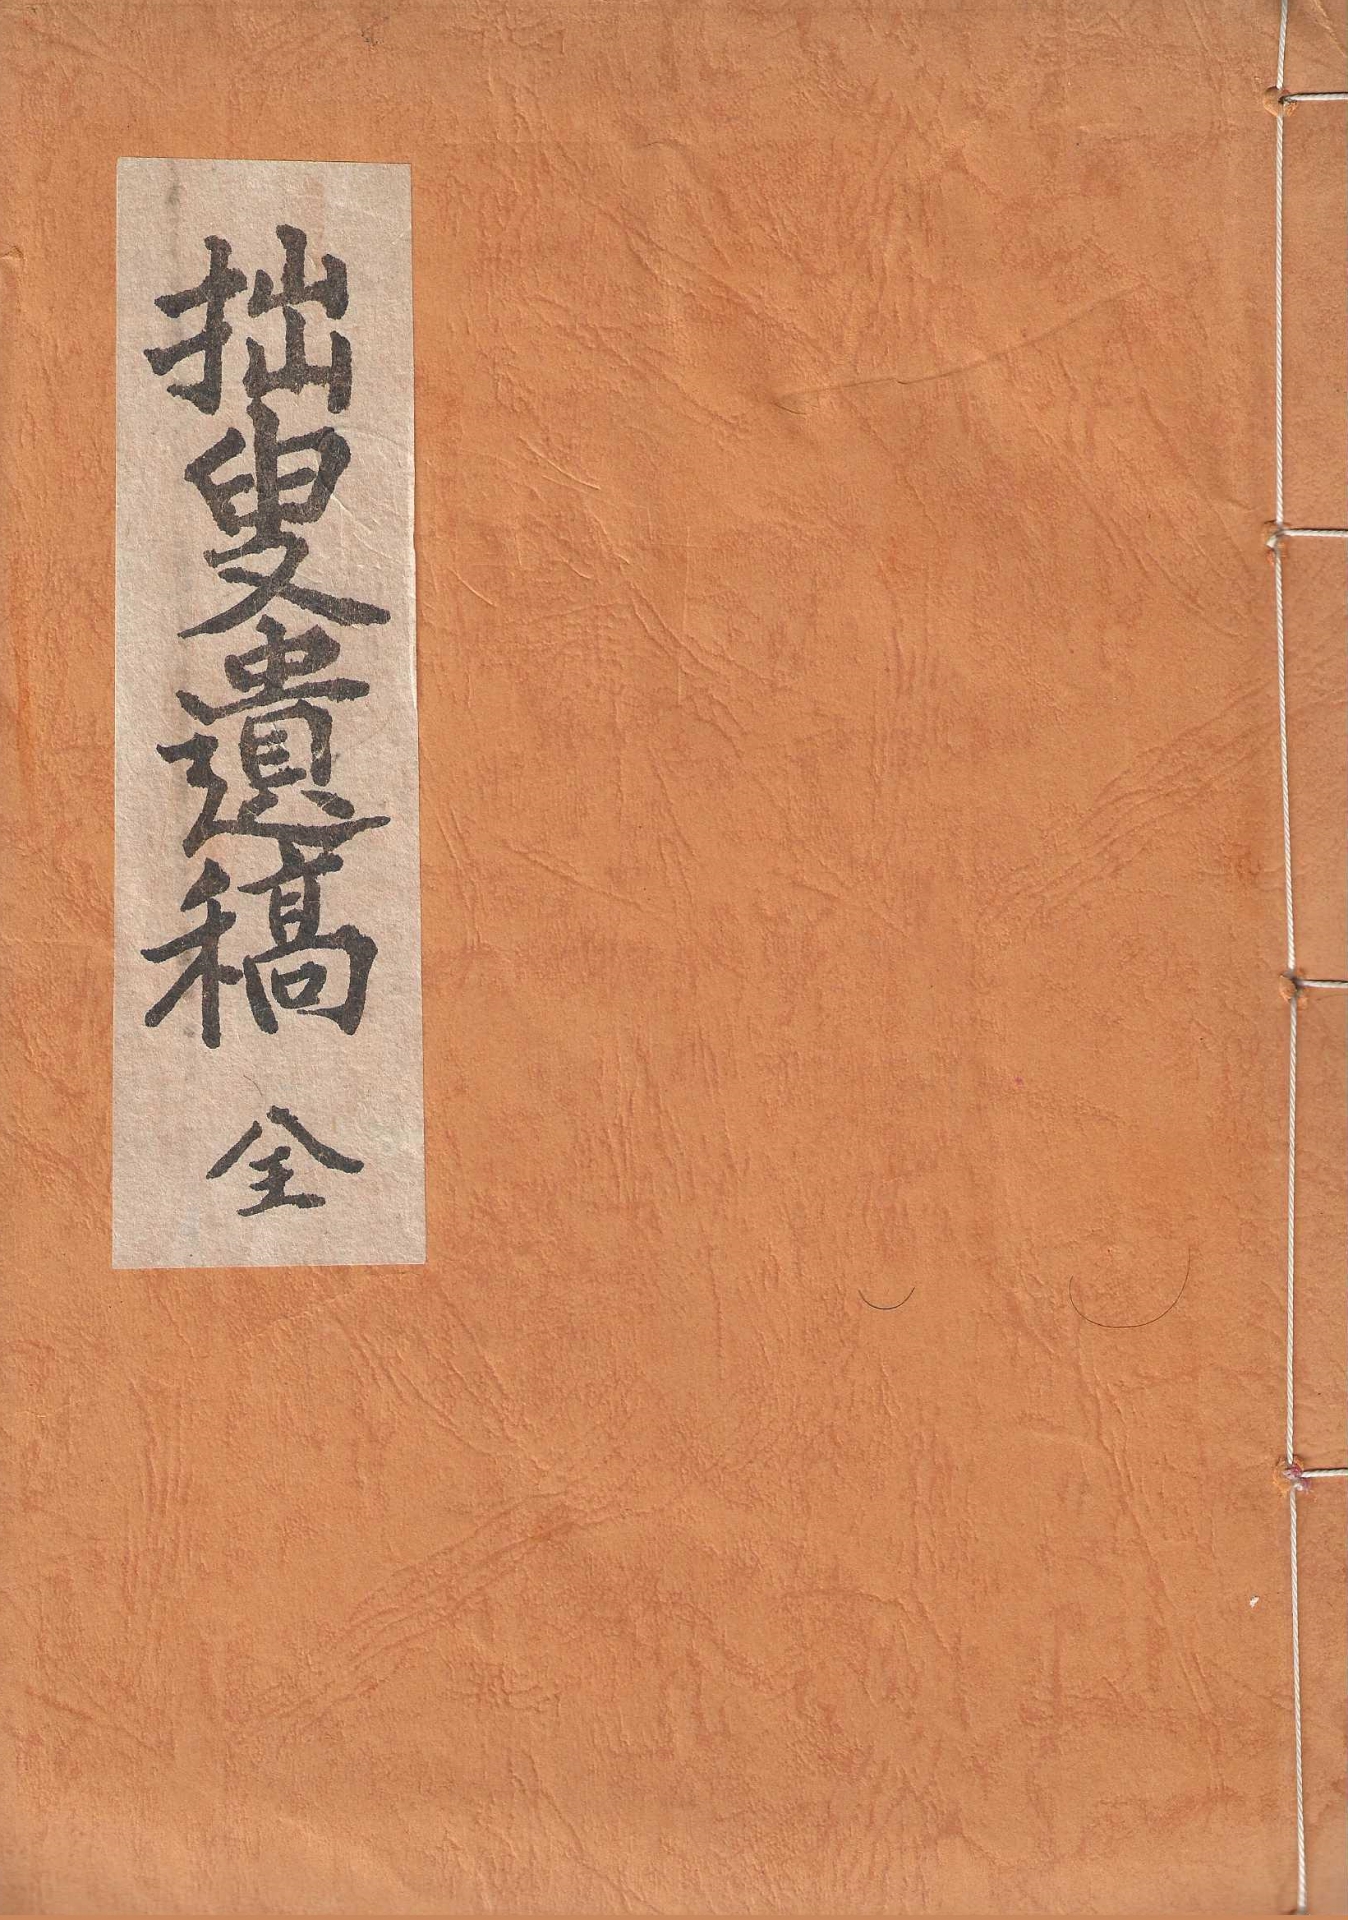 拙叟遺稿 全